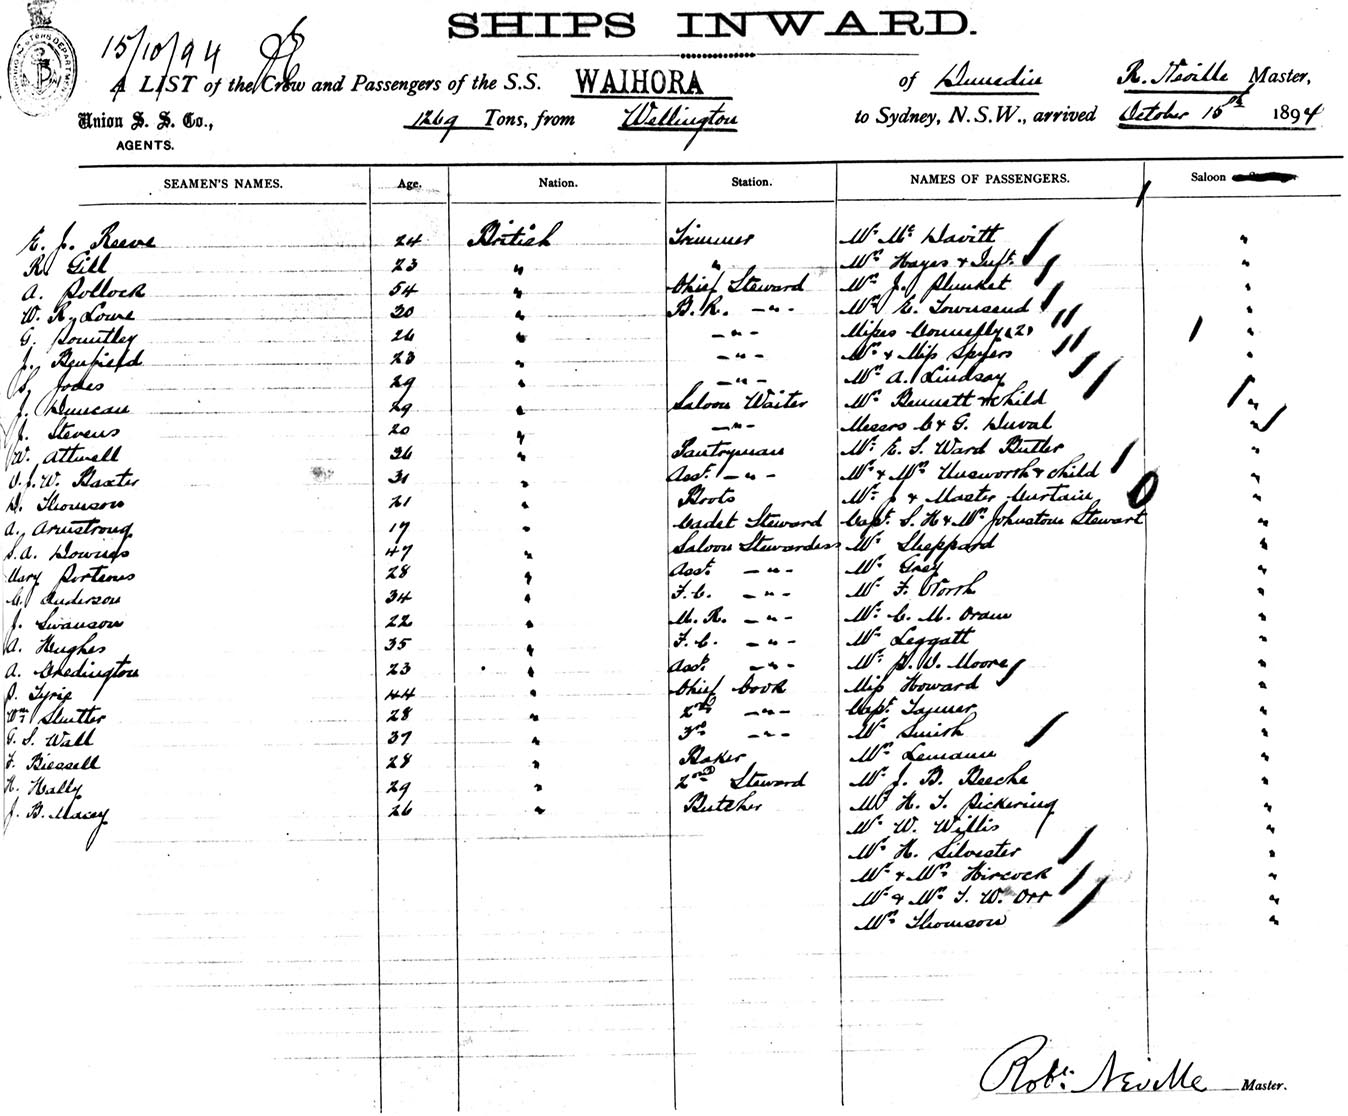 SHIPS INWARD.
15/10/94
A LIST of the Crew and Passengers of the S.S. WAIHORA of Dunedin R. Neville Master,
Union S. S. Co., 1269 Tons, from Wellington to Sydney, N.S.W., arrived October 15th 1894
AGENTS.
SEAMEN'S NAMES. Age. Nation. Station. NAMES OF PASSENGERS. Saloon
E. J. Reeve 24 British Trimmer Mr McDavitt "
R. Gill 23 " " Mrs Hayes & Inft. "
A. Pollock 54 " Chief Steward Mrs J. Plunket "
W. R. Lowe 30 " B.R. - " - Mrs E. Townsend "
G. Pountley 26 " - " - Misses Connelly (2) "
J. Benfield 23 " - " - Mrs & Miss Spyers "
S. Jones 29 " - " - Mrs A. Lindsay "
J. Duncan 29 " Saloon Waiter Mrs Bennett & child "
J. Stevens 20 " - " - Messrs C & G. Duval "
W. Attwell 36 " Pantryman Mr E. S. Ward Butler "
V. J. W. Baxter 31 " Asst. - " - Mr & Mrs Unsworth & child "
D. Thomson 21 " Boots Mr & Master Curtain "
A. Armstrong 17 " Cadet Steward Capt. S. H & Mrs Johnstone Stewart "
S. A. Downes 47 " Saloon Stewardess Mr Sheppard "
Mary Porteous 28 " Asst. - " - Mr Grey "
C. Anderson 34 " F.C. - " - Mr F. North "
J. Swanson 22 " M.R. - " - Mr C. M. Oram "
A. Hughes 35 " F.C. - " - Mr Leggatt "
A. Chedington 23 " Asst. - " - Mr Moore "
P. Tyrie 44 " Chief Cook Miss Howard "
Wm Slutter 28 " 2nd - " - Capt. "
G. S. Wall 37 " 3rd - " - Mr Smith "
F. Biessell 28 " Baker Mrs Lemann "
H. Hally 29 " 2nd Steward Mr J. B. Beeche "
J. B. Macey 26 " Butcher Mr H. T. Pickering "
Mr W. Willis "
Mr H. Silvester "
Mr & Mrs Hircock "
Mr & Mrs T. W. Orr "
Mrs Thomson "
Robt. Neville Master.